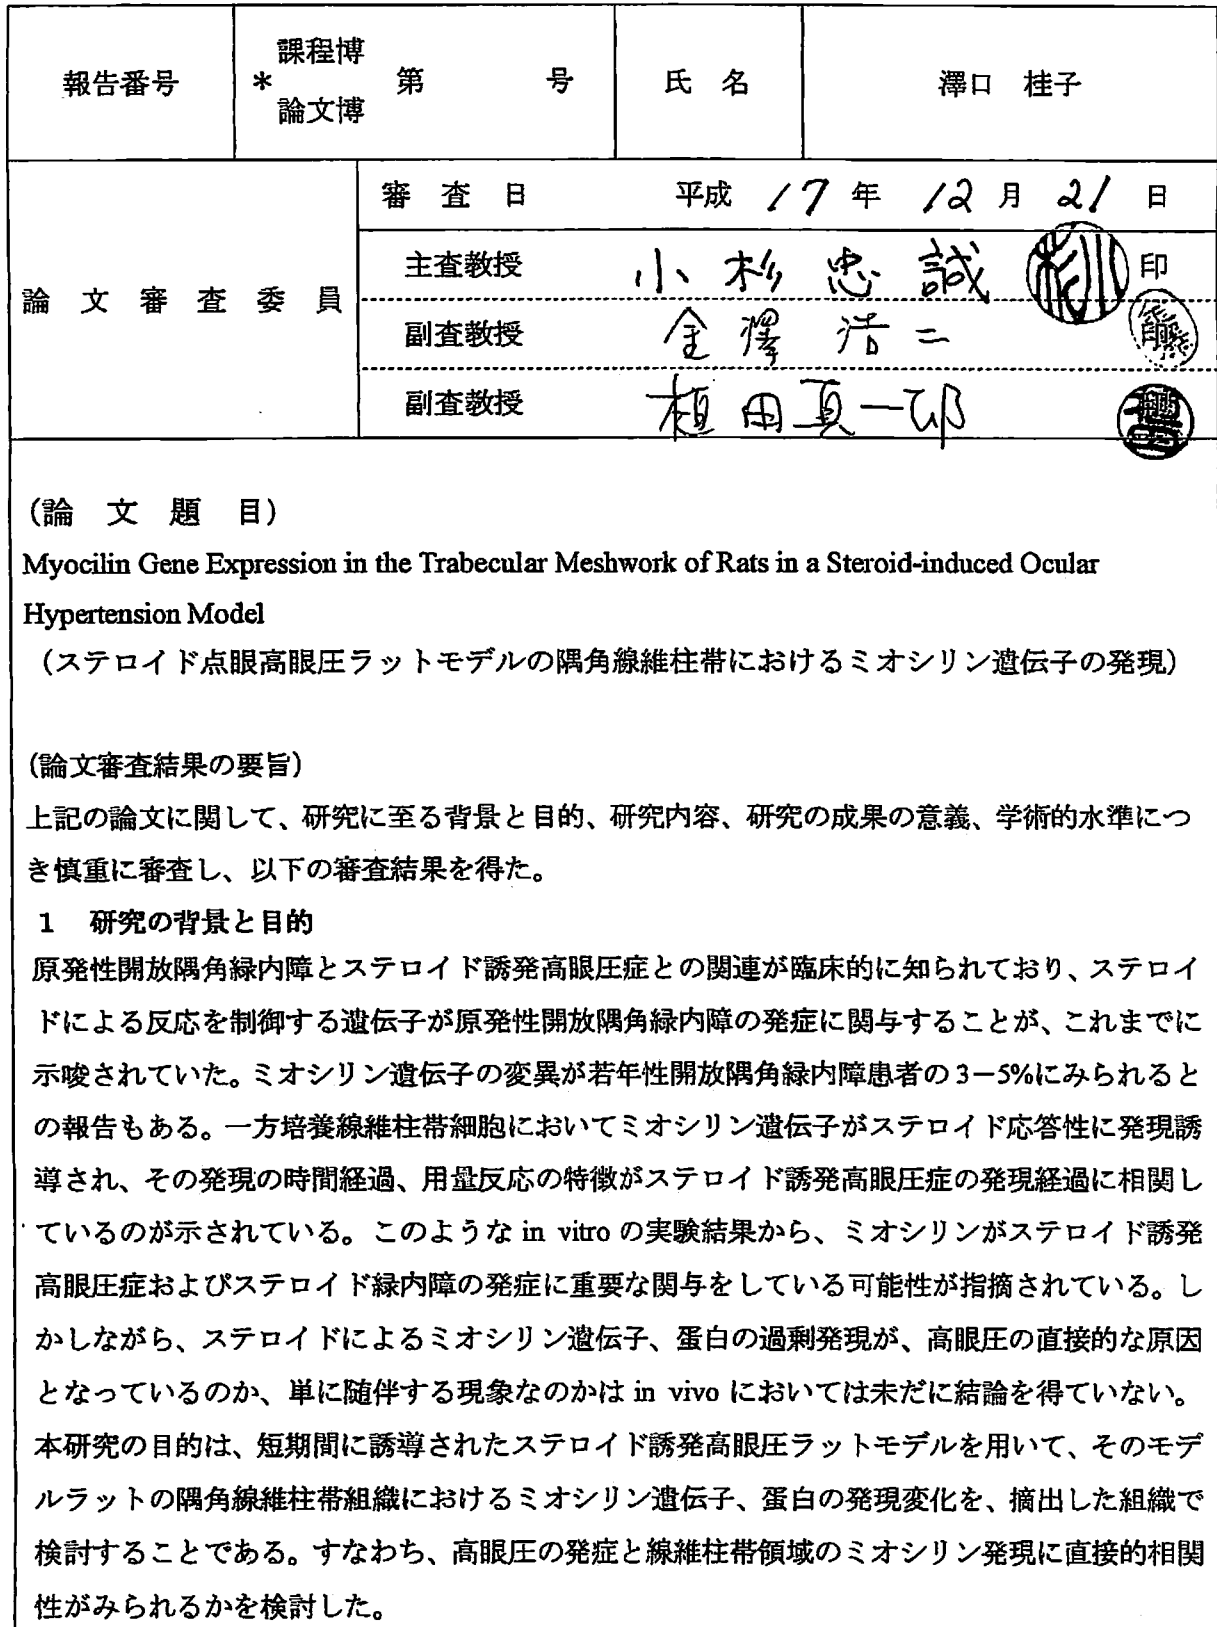 報告番号
課程博
＊
論文博
第 号
氏 名
澤口 桂子
論 文 審 査 委 員
審 査 日 平成 17 年 12 月 21 日
主査教授 小杉 忠誠 印
副査教授 金澤 浩二
副査教授 植田真一郎
(論 文 題 目)
Myocilin Gene Expression in the Trabecular Meshwork of Rats in a Steroid-induced Ocular
Hypertension Model
（ステロイド点眼高眼圧ラットモデルの隅角線維柱帯におけるミオシリン遺伝子の発現）
(論文審査結果の要旨)
上記の論文に関して、研究に至る背景と目的、研究内容、研究の成果の意義、学術的水準につ
き慎重に審査し、以下の審査結果を得た。
1 研究の背景と目的
原発性開放隅角緑内障とステロイド誘発高眼圧症との関連が臨床的に知られており、ステロイ
ドによる反応を制御する遺伝子が原発性開放隅角緑内障の発症に関与することが、これまでに
示唆されていた。ミオシリン遺伝子の変異が若年性開放隅角緑内障患者の3－5%にみられると
の報告もある。一方培養線維柱帯細胞においてミオシリン遺伝子がステロイド応答性に発現誘
導され、その発現の時間経過、用量反応の特徴がステロイド誘発高眼圧症の発現経過に相関し
ているのが示されている。このような in vitro の実験結果から、ミオシリンがステロイド誘発
高眼圧症およびステロイド緑内障の発症に重要な関与をしている可能性が指摘されている。し
かしながら、ステロイドによるミオシリン遺伝子、蛋白の過剰発現が、高眼圧の直接的な原因
となっているのか、単に随伴する現象なのかは in vivo においては未だに結論を得ていない。
本研究の目的は、短期間に誘導されたステロイド誘発高眼圧ラットモデルを用いて、そのモデ
ルラットの隅角線維柱帯組織におけるミオシリン遺伝子、蛋白の発現変化を、摘出した組織で
検討することである。すなわち、高眼圧の発症と線維柱帯領域のミオシリン発現に直接的相関
性がみられるかを検討した。